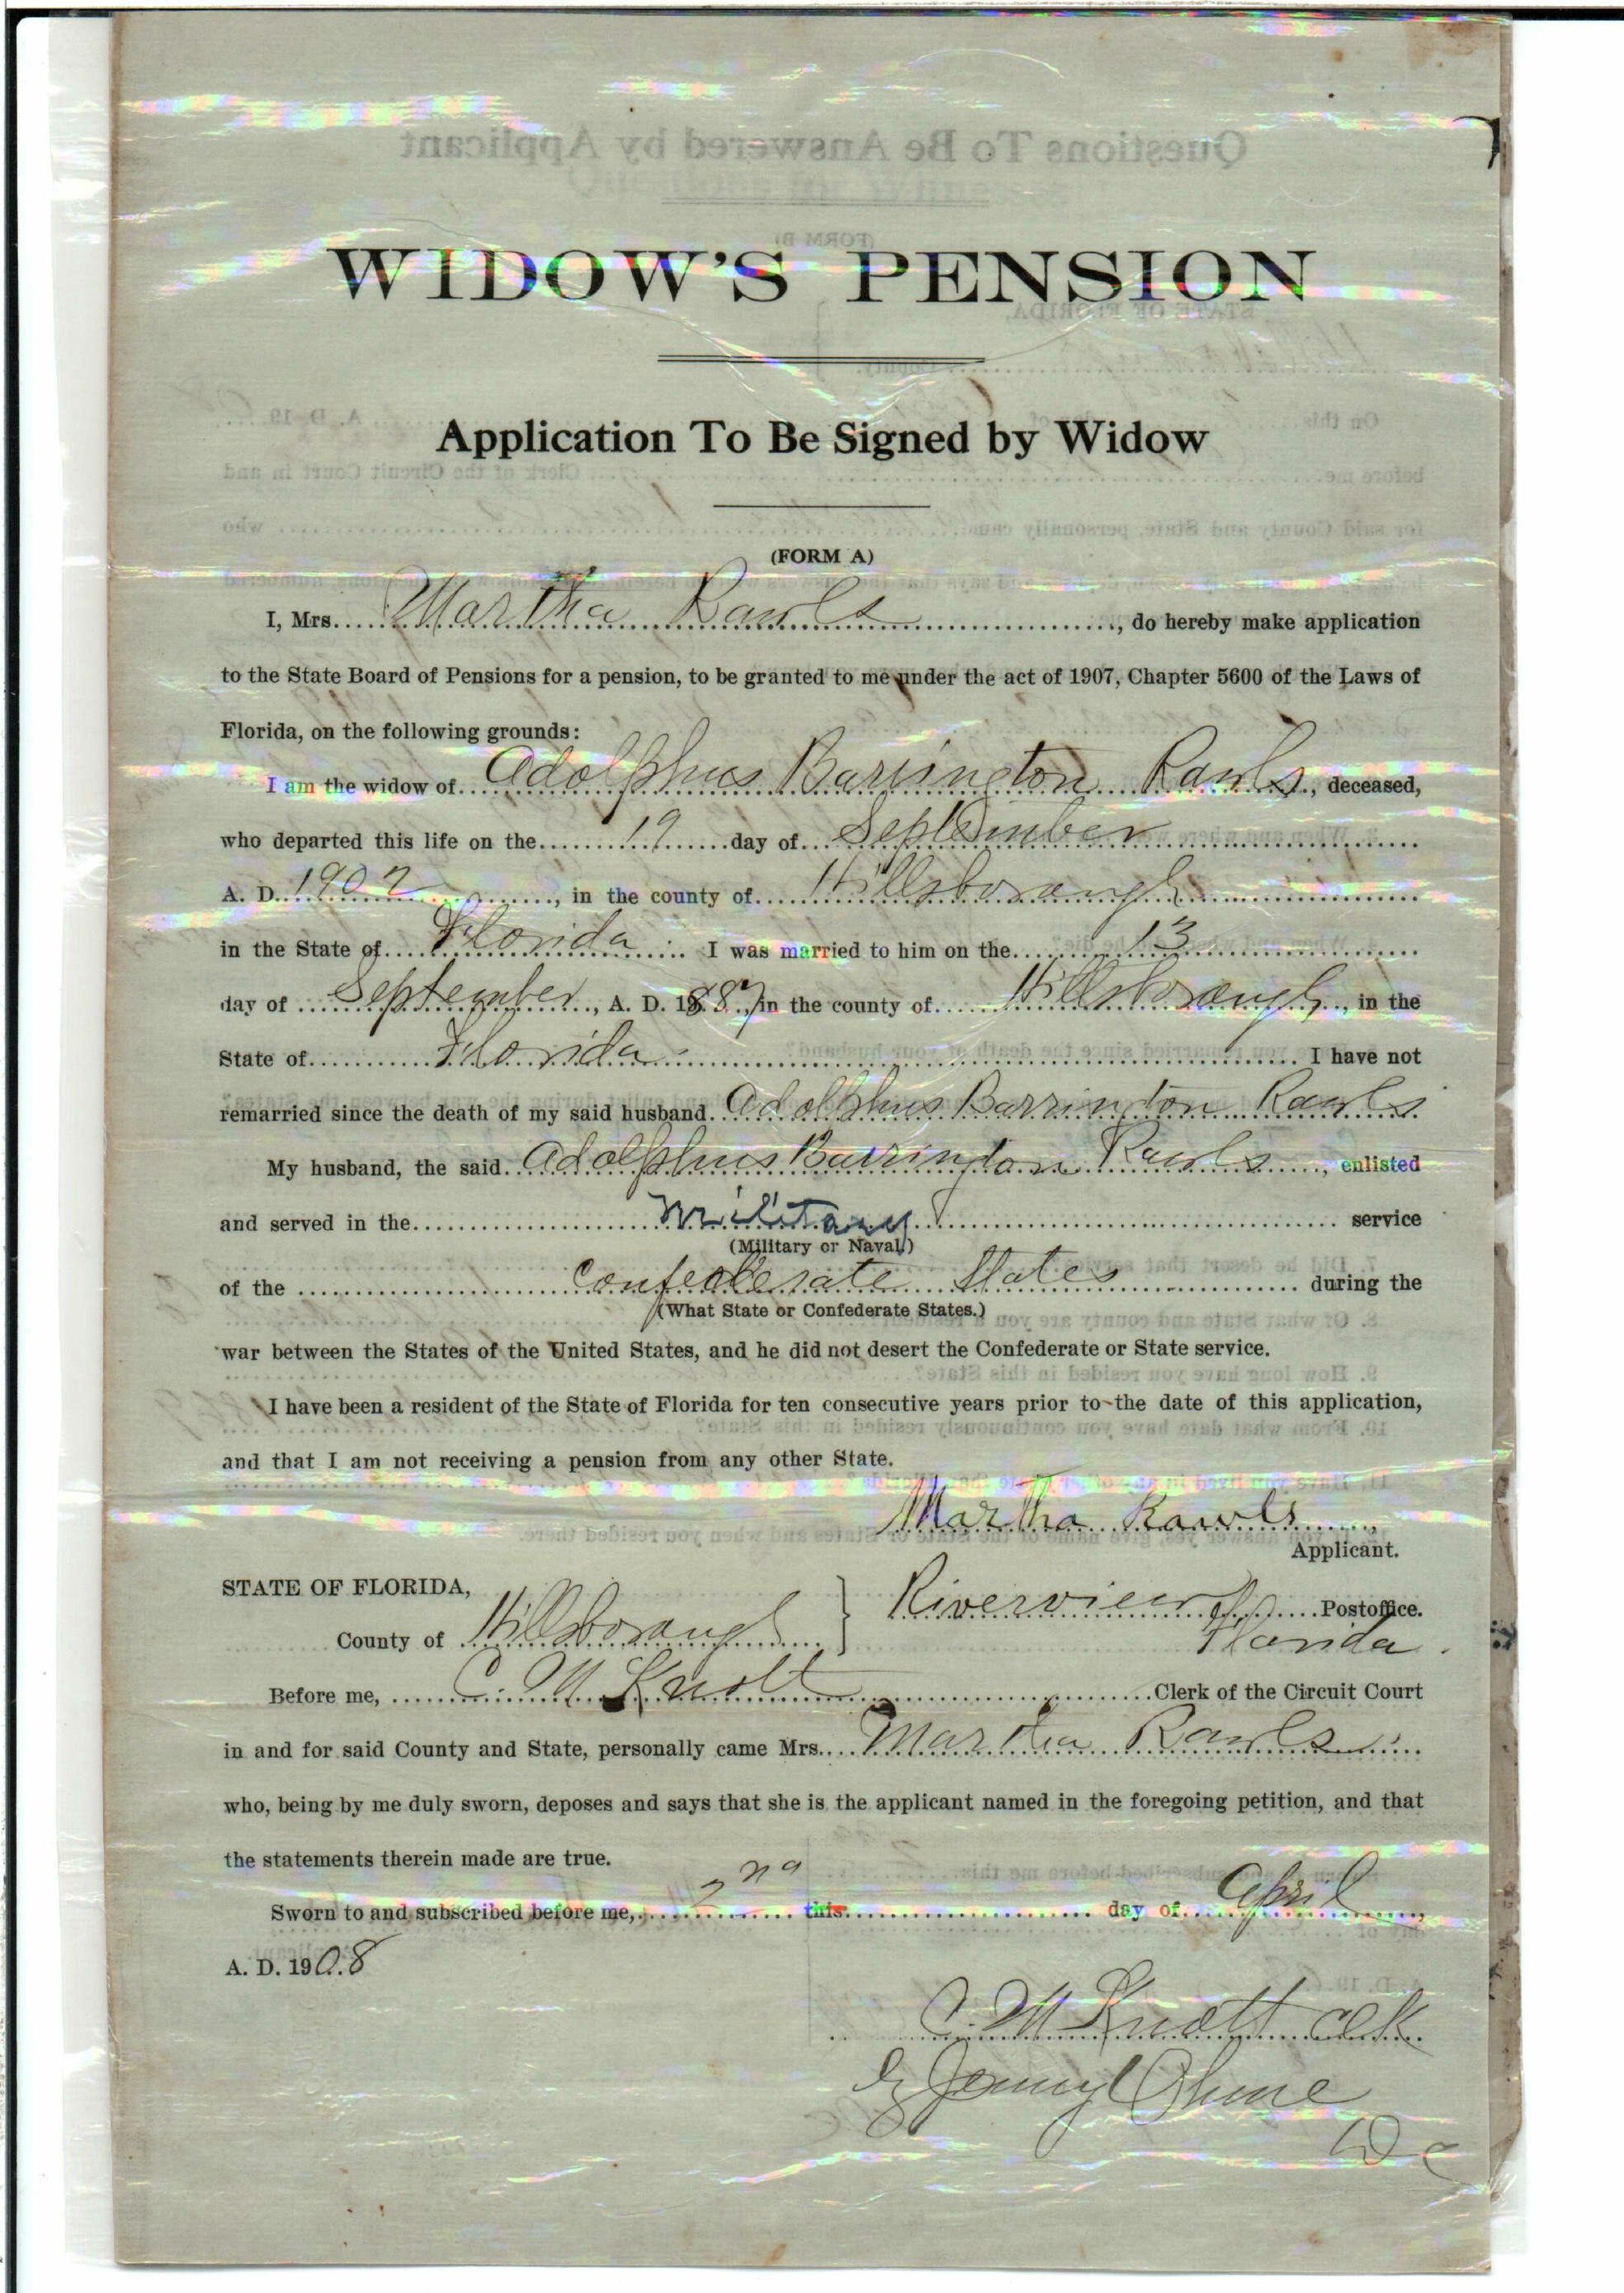 WIDOW'S PENSION
Application To Be Signed by Widow
(FORM A)
I, Mrs. Martha Rawls, do hereby make application
to the State Board of Pensions for a pension, to be granted to me under the act of 1907, Chapter 5600 of the Laws of
Florida, on the following grounds:
I am the widow of Adolphus Barrington Rawls, deceased,
who departed this life on the 19 day of September
A. D. 1902, in the county of Hillsborough
in the State of Florida. I was married to him on the 13
day of September, A. D. 1887, in the county of Hillsborough, in the
State of Florida. I have not
remarried since the death of my said husband Adolphus Barrington Rawls
My husband, the said Adolphus Barrington Rawls, enlisted
and served in the Military service
(Military or Naval)
of the Confederate States during the
(What State or Confederate States.)
war between the States of the United States, and he did not desert the Confederate or State service.
I have been a resident of the State of Florida for ten consecutive years prior to the date of this application,
and that I am not receiving a pension from any other State.
Martha Rawls,
Applicant.
STATE OF FLORIDA,
County of Hillsborough
Riverview Postoffice.
Florida.
Before me, C. M. Knott Clerk of the Circuit Court
in and for said County and State, personally came Mrs. Martha Rawls
who, being by me duly sworn, deposes and says that she is the applicant named in the foregoing petition, and that
the statements therein made are true.
Sworn to and subscribed before me, 2nd this day of April,
A. D. 1908
C. M. Knott Clk
By
DC